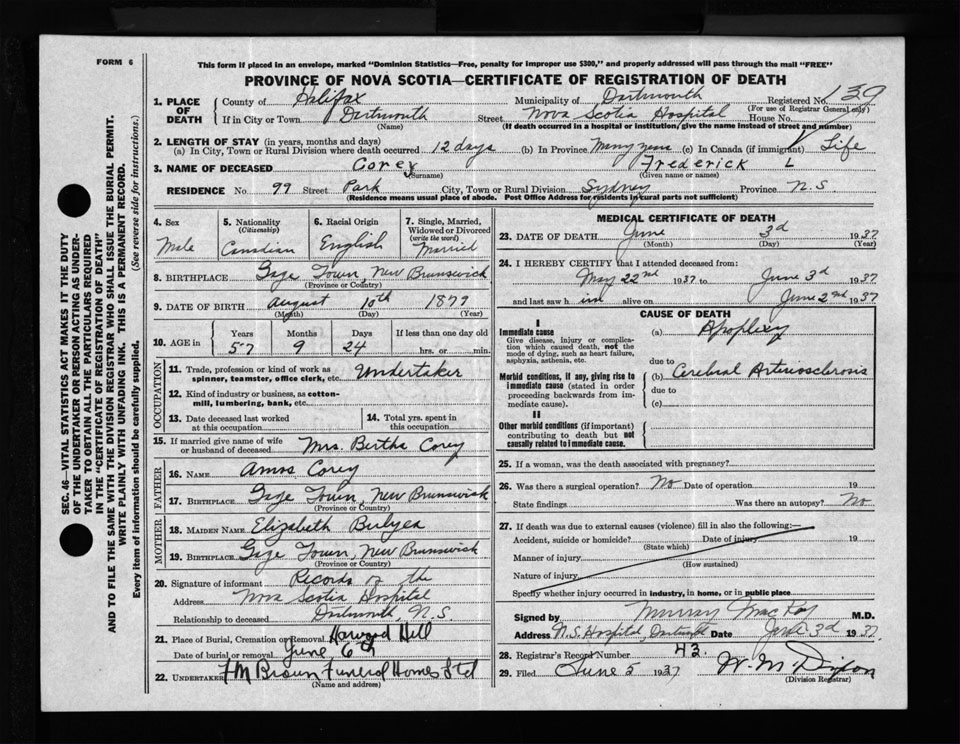 FORM 6
This form if placed in an envelope, marked "Dominion Statistics—Free, penalty for improper use $300," and properly addressed will pass through the mail "FREE"
PROVINCE OF NOVA SCOTIA—CERTIFICATE OF REGISTRATION OF DEATH
1. PLACE OF DEATH County of Halifax Municipality of Dartmouth Registered No. 139
(For use of Registrar General only)
If in City or Town Dartmouth Street Nova Scotia Hospital House No.
(Name) (If death occurred in a hospital or institution, give the name instead of street and number)
2. LENGTH OF STAY (in years, months and days)
(a) In City, Town or Rural Division where death occurred 12 days (b) In Province Many years (c) In Canada (if immigrant) Life
3. NAME OF DECEASED Corey Frederick L
(Surname) (Given name or names)
RESIDENCE No. 99 Street Park City, Town or Rural Division Sydney Province N.S.
(Residence means usual place of abode. Post Office Address for residents in rural parts not sufficient)
4. Sex Male
5. Nationality (Citizenship) Canadian
6. Racial Origin English
7. Single, Married, Widowed or Divorced (write the word) Married
8. BIRTHPLACE Gage Town, New Brunswick
(Province or Country)
9. DATE OF BIRTH August 10th 1879
(Month) (Day) (Year)
10. AGE in Years 57 Months 9 Days 24 If less than one day old hrs. or min.
OCCUPATION
11. Trade, profession or kind of work as spinner, teamster, office clerk, etc. Undertaker
12. Kind of industry or business, as cotton-mill, lumbering, bank, etc.
13. Date deceased last worked at this occupation
14. Total yrs. spent in this occupation
15. If married give name of wife or husband of deceased Mrs. Bertha Corey
FATHER
16. NAME Amos Corey
17. BIRTHPLACE Gage Town, New Brunswick
(Province or Country)
MOTHER
18. MAIDEN NAME Elizabeth Bulyea
19. BIRTHPLACE Gage Town, New Brunswick
(Province or Country)
20. Signature of informant Records of the
Address Nova Scotia Hospital
Relationship to deceased Dartmouth, N.S.
21. Place of Burial, Cremation or Removal Harwood Hill
Date of burial or removal June 6th
22. UNDERTAKER F M Brown Funeral Homes Ltd
(Name and address)
MEDICAL CERTIFICATE OF DEATH
23. DATE OF DEATH June 3d 1937
(Month) (Day) (Year)
24. I HEREBY CERTIFY that I attended deceased from:
May 22nd 1937 to June 3d 1937
and last saw him alive on June 2nd 1937
CAUSE OF DEATH
I
Immediate cause (a) Apoplexy
Give disease, injury or complication which caused death, not the mode of dying, such as heart failure, asphyxia, asthenia, etc.
due to
Morbid conditions, if any, giving rise to immediate cause (stated in order proceeding backwards from immediate cause). (b) Cerebral Arteriosclerosis
due to
(c)
II
Other morbid conditions (if important) contributing to death but not causally related to immediate cause.
25. If a woman, was the death associated with pregnancy?
26. Was there a surgical operation? No Date of operation 19
State findings Was there an autopsy? No
27. If death was due to external causes (violence) fill in also the following:
Accident, suicide or homicide? Date of injury 19
(State which)
Manner of injury
(How sustained)
Nature of injury
Specify whether injury occurred in industry, in home, or in public place
Signed by Murray MacKay M.D.
Address N.S. Hospital, Dartmouth Date June 3d 1937
28. Registrar's Record Number 43.
29. Filed June 5 1937 W. M. Dixon
(Division Registrar)
SEC. 46—VITAL STATISTICS ACT MAKES IT THE DUTY
OF THE UNDERTAKER OR PERSON ACTING AS UNDER-
TAKER TO OBTAIN ALL THE PARTICULARS REQUIRED
IN THE "CERTIFICATE OF REGISTRATION OF DEATH"
AND TO FILE THE SAME WITH THE DIVISION REGISTRAR WHO SHALL ISSUE THE BURIAL PERMIT.
WRITE PLAINLY WITH UNFADING INK. THIS IS A PERMANENT RECORD.
Every item of information should be carefully supplied. (See reverse side for instructions.)